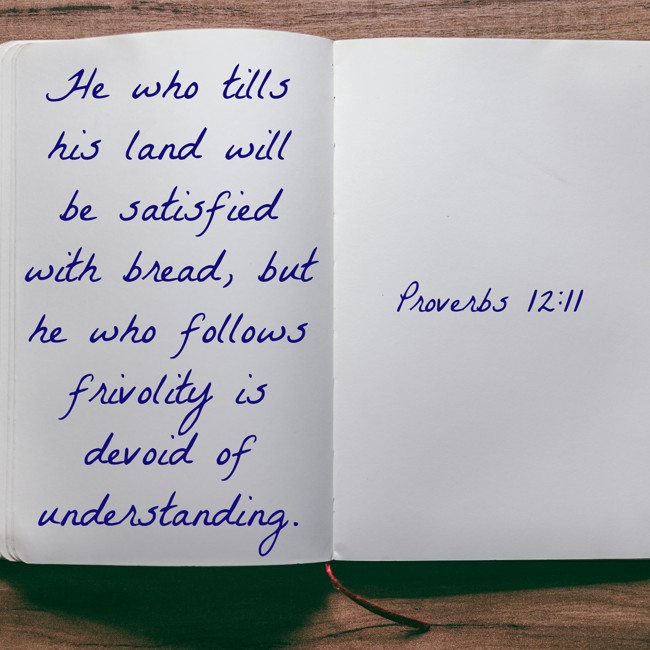 He who tills
his land will
be satisfied
with bread, but
he who follows
frivolity is
devoid of
understanding.
Proverbs 12:11